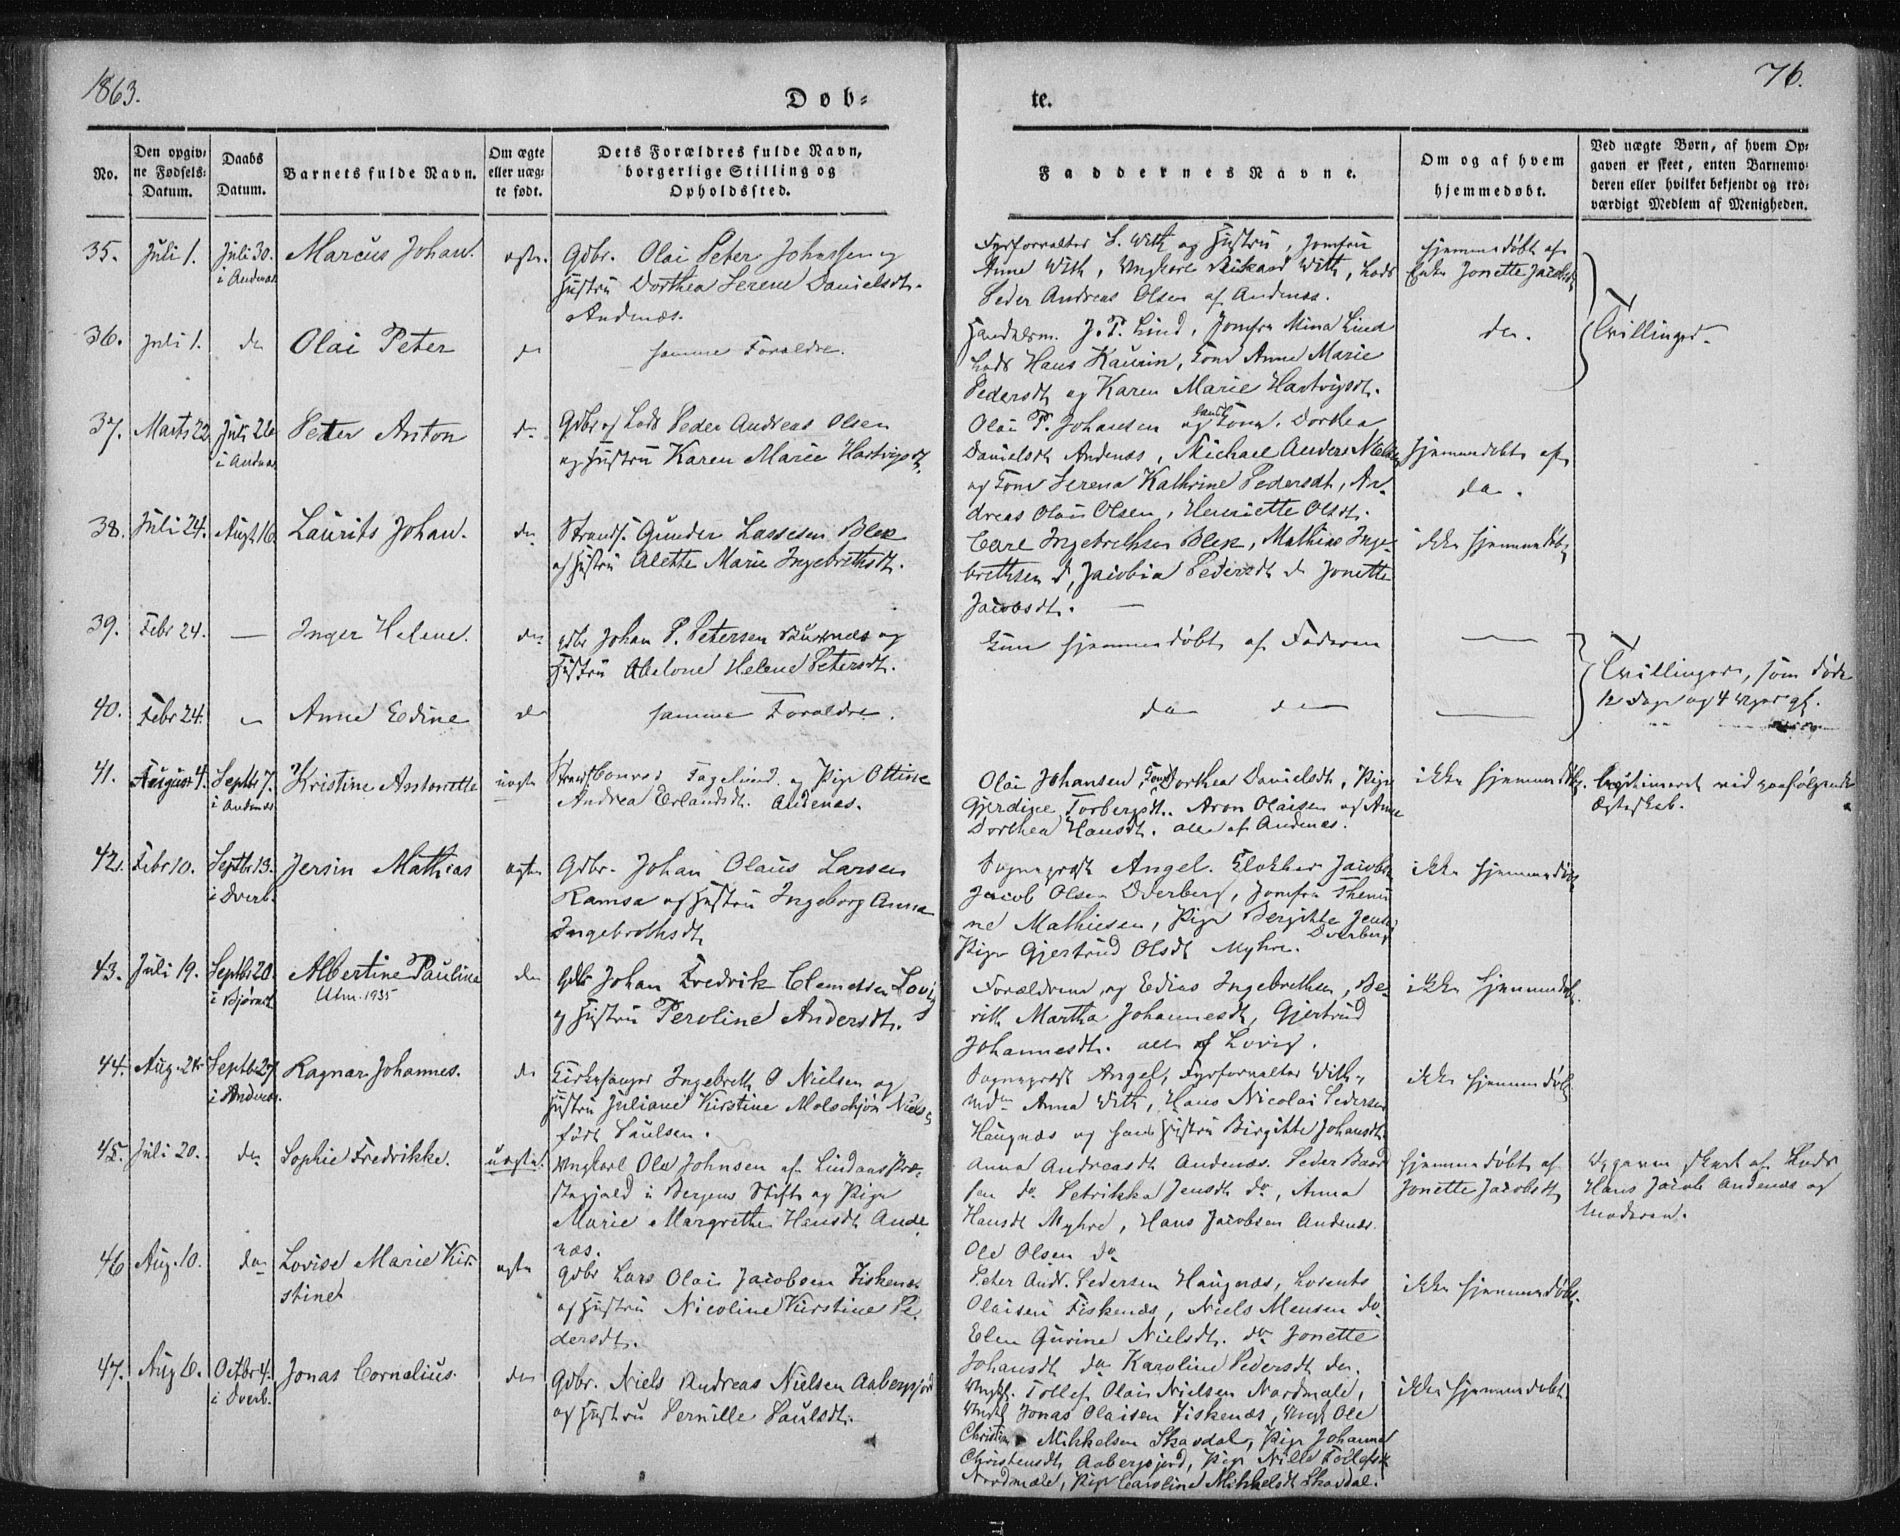 1863.
76.
Døb-
te.
No.
Den opgiv-
ne Fødsels-
Datum.
Daabs
Datum.
Barnets fulde Navn.
Om ægte
eller uæg-
te født.
Dets Forældres fulde Navn,
borgerlige Stilling og
Opholdssted.
Faddernes Navne.
Om og af hvem
hjemmedøbt.
Ved uægte Børn, af hvem Op-
gaven er skeet, enten Barnemo-
deren eller hvilket bekjendt og tro-
værdigt Medlem af Menigheden.
35.
Juli 1.
Juli 30.
i Andenæs
Marcus Johan.
ægte.
Gdbr. Olai Peter Johnssen og
Hustru Dorthea Serene Danielsdt.
Andenæs.
Fyrforvalter S. With og Hustru, Jomfru
Anne With, Ungkarl Rikard With, Lods
Peder Andreas Olsen af Andenæs.
hjemmedøbt af
Enke Jonette Jacobsdt
36.
Juli 1.
do
Olai Peter
do
samme Forældre.
Handelsm. J. P. Lind, Jomfru Mina Lind
Lods Hans Kaurin, Kone Anne Marie
Pedersdt og Karen Marie Hartvigsdt.
do.
Tvillinger.
37.
Marts 22
Juli 26
i Andnæs
Peter Anton
do
Gdbr og Lods Peder Andreas Olsen
og Hustru Karen Marie Hartvigsdt
Olai P. Johansen og hans Kone Dorthea
Danielsdt Andenæs, Michael Anders
og Kone Serena Kathrine Pedersdt, An-
dreas Olai Olsen, Henriette Olsdt.
hjemmedøbt af
do.
38.
Juli 24.
Augt. 16.
Laurits Johan.
do
Strands. Gunder Lassesen Blek
og Hustru Alette Marie Ingebrethsdt.
Carl Ingebrethsen Blek, Mathias Inge-
brethsen d, Jacobia Pedersdt d Jonette
Jacobsdt.
ikke hjemmedøbt
39.
Febr 24.
—
Inger Helene.
do
gdbr Johan P. Petersen og
Hustru Abelone Helene Petersdt.
Kun hjemmedøbt af Faderen
—
Tvillinger, som døde
12 Dage og 4 Uger gl.
40.
Febr 24.
—
Anne Edine
do
samme Forældre.
do do
—
41.
August 4.
Septbr 7.
i Andenæs
Kristine Anntonette
uægte
Strands Conrad Fagelund og Pige Ottine
Andrea Erlandsdt. Andenæs.
Olai Johansen, Kone Dorthea Danielsdt, Pige
Gjerdine Torbergsdt. Aron Olaisen og Anne
Dorthea Hansdt. alle af Andenæs.
ikke hjemmedøbt.
Legitimeret ved paafølgende
Ægteskab.
42.
Febr 10.
Septbr 13.
i Dverb.
Jersin Mathias
ægte
Gdbr. Johan Olaus Larsen
Ramsa og Hustru Ingeborg Anna
Ingebrethsdt
Sogneprest Angel. Klokker Jacobsen
Jacob Olsen Dverberg, Jomfru
Mathiesen, Pige Bergitte
Dverberg
Pige Gjertrud Olsdt Myhre.
ikke hjemmedøbt
43.
Juli 19.
Septbr 20.
i Bjørnsk.
Albertine Pauline
Utm. 1935
do
Gdbr Johan Fredrik Clemetsen Lovig
og Hustru Peroline Andersdt.
Forældrene, og Edias Ingebrethsen, Be-
rith Martha Johannesdt, Gjertrud
Johannesdt. alle af Lovig.
ikke hjemmedøbt.
44.
Aug. 24
Septbr 27
i Andnæs
Ragnar Johannes.
do
Kirkesanger Ingebreth O Nielsen og
Hustru Juliane Kirstine Molschjøn Nielsen
født Paulsen.
Sogneprest Angel, Fyrforvalter With,
Anna With, Hans Nicolai Pedersen
Haugnæs og hans Hustru Birgitte Johansdt.
ikke hjemmedøbt
45.
Juli 20.
do
Sophie Fredrikke.
uægte.
Ungkarl Ole Johnsen af Lindaas Præ-
stegjæld i Bergens Stift og Pige
Marie Margrethe Hansdt Ande
næs.
Anna Andreasdt Andenæs. Peder Baard
sen do. Petrikka Jensdt do, Anna
Hansdt Myhre, Hans Jacobsen Andenæs.
Ole Olsen do
hjemmedøbt af
Jonette Jacobsdt
Opgaven skeet af Lods
Hans Jacob Andenæs og
Moderen.
46
Aug. 10.
do
Lovise Marie Kir-
stine
ægte
Gdbr Lars Olai Jacobsen Fiskenæs
og Hustru Nicoline Kirstine Pe-
dersdt.
Peter Andr. Pedersen Haugnæs, Lorents
Olaisen Fiskenæs, Niels Monsen do.
Elen Gurine Nielsdt. do Jonette
Johansdt do Karoline Pedersdt do.
ikke hjemmedøbt.
47.
Aug 6.
Octbr 4.
i Dverb.
Jonas Cornelius.
do
Gdbr. Niels Andreas Nielsen Aabergsjord
og Hustru Pernille Paulsdt.
Ungk. Tollef Olai Nielsen Nordmæle,
Ungk Jonas Olaisen Fiskenæs, Ungk Ole
Christian Mikkelsen Skavdal, Pige Johanna
Christensdt Aabergsjord, Pige Nille Tollefsdt
Nordmæle, Pige Caroline Mikkelsdt Skavdal.
ikke hjemmedøbt